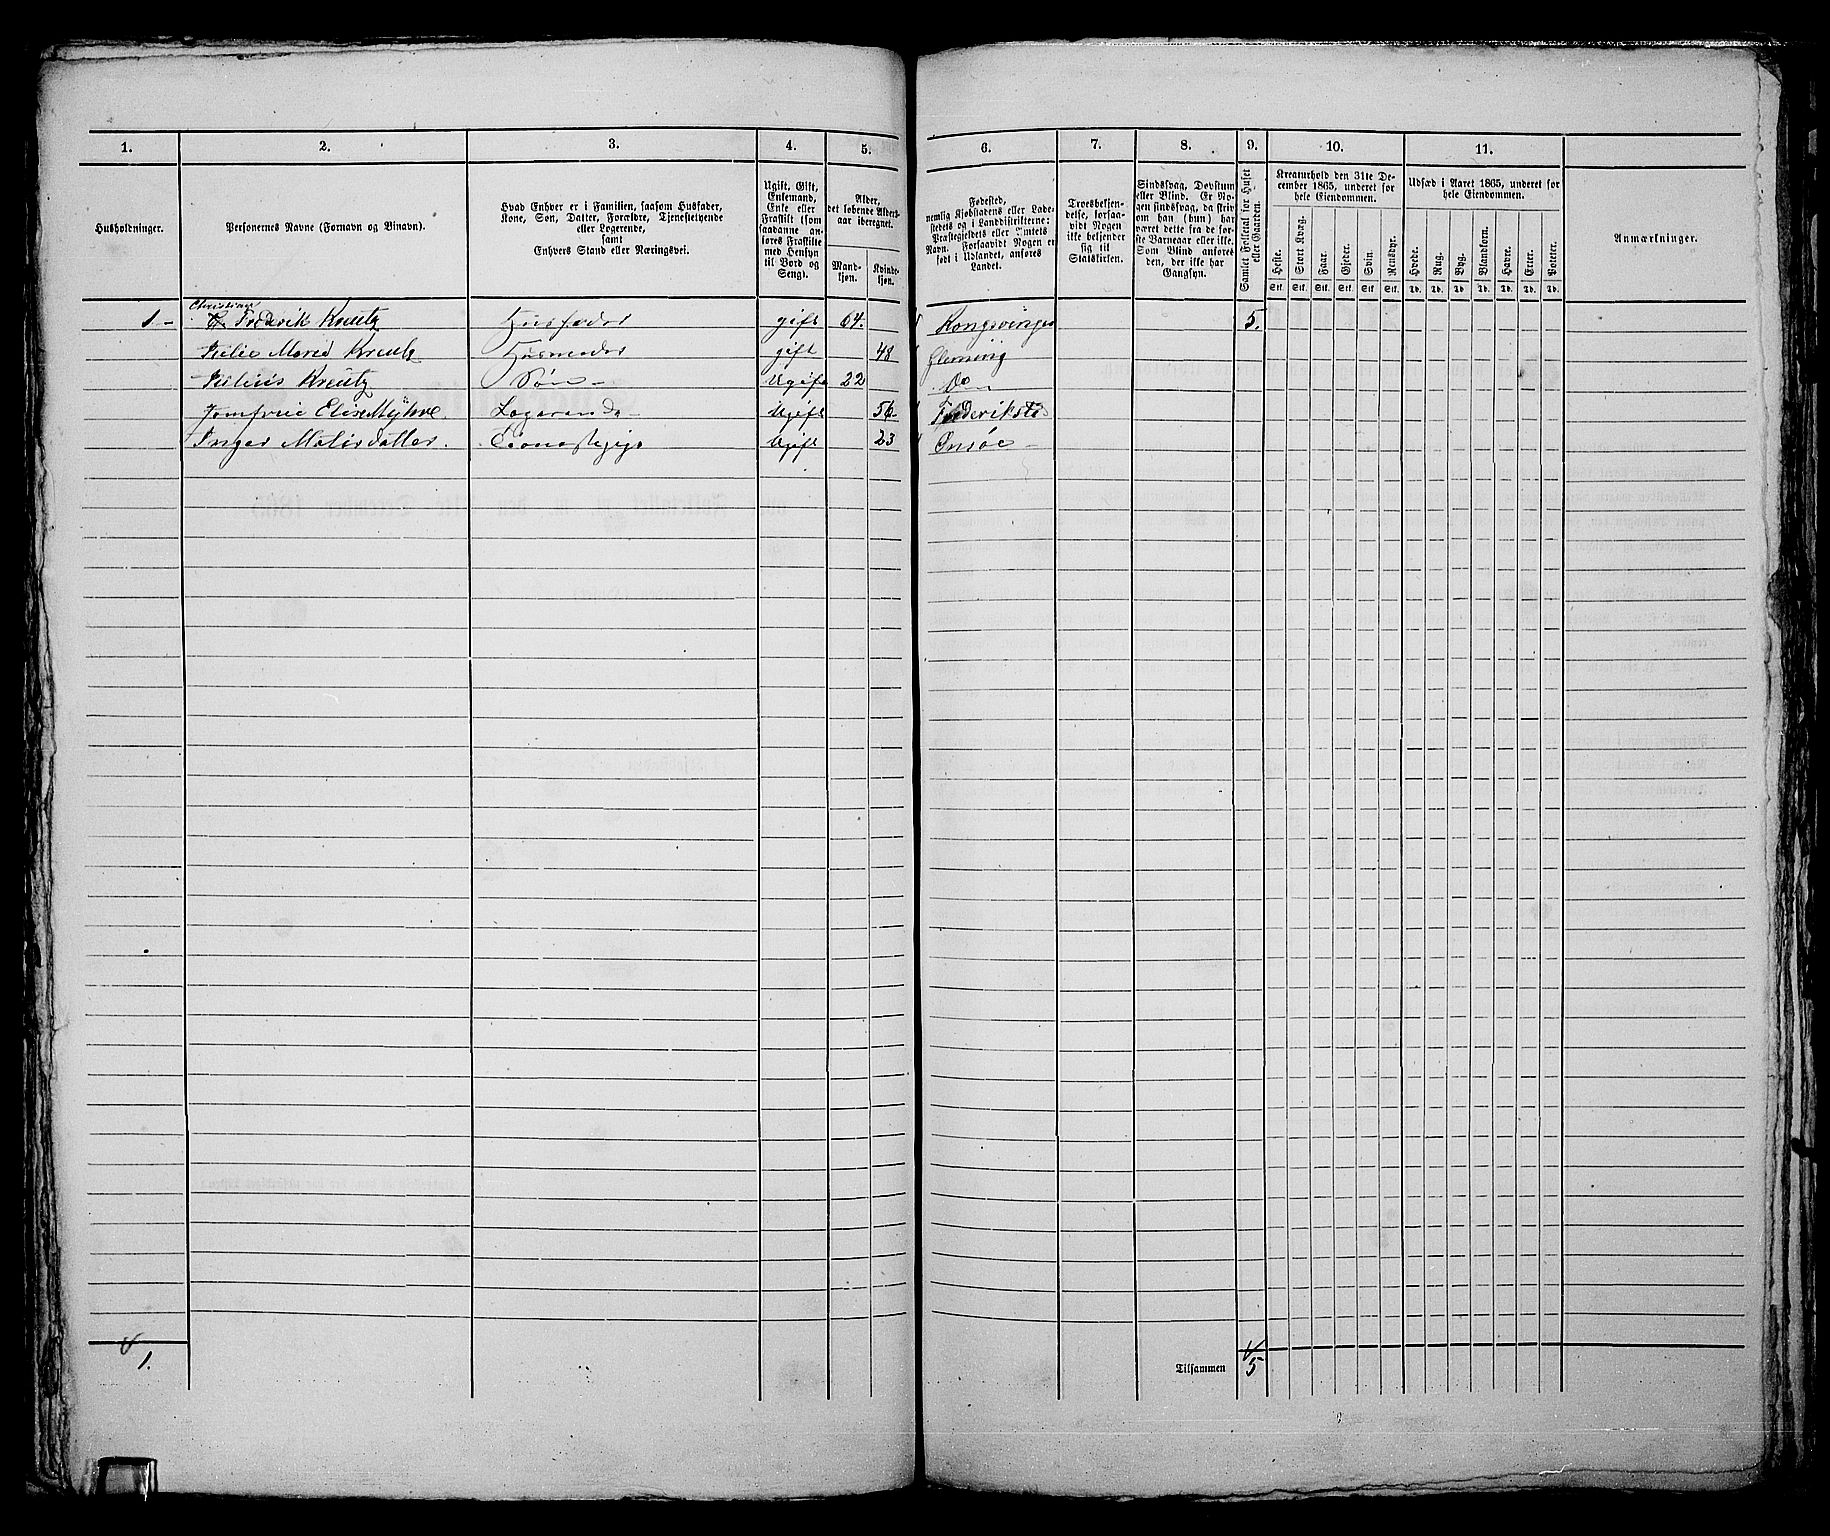 1. 2. 3. 4. 5. 6. 7. 8. 9. 10. 11.
Husholdninger.
Personernes Navne (Fornavn og Binavn).
Hvad Enhver er i Familien, saasom Husfader,
Kone, Søn, Datter, Forældre, Tjenestetyende
eller Logerende,
samt
Enhvers Stand eller Næringsvei.
Ugift, Gift,
Enkemand,
Enke eller
Fraskilt (som
saadanne an-
føres Fraskilte
med Hensyn
til Bord og
Seng).
Alder,
det løbende Alders-
aar iberegnet.
Mand-
kjøn.
Kvinde-
kjøn.
Fødested,
nemlig Kjøbstadens eller Lade-
stedets og i Landdistrikterne:
Præstegjeldets eller Amtets
Navn. Forsaavidt Nogen er
født i Udlandet, anføres
Landet.
Troesbekjen-
delse, forsaa-
vidt Nogen
ikke bekjender
sig til
Statskirken.
Sindssvag, Døvstum
eller Blind. Er No-
gen sindssvag, da skriv
om han (hun) har
været dette fra de før-
ste Barneaar eller ikke.
Som Blind anføres
den, der ikke har
Gangsyn.
Samlet Folketal for Huset
eller Gaarden.
Kreaturhold den 31te De-
cember 1865, underet for
hele Eiendommen.
Heste. Stort Kvæg. Faar. Gjeder. Svin. Rensdyr.
Stk. Stk. Stk. Stk. Stk. Stk.
Udsæd i Aaret 1865, underet for
hele Eiendommen.
Hvede. Rug. Byg. Blandkorn. Havre. Erter. Poteter.
Td. Td. Td. Td. Td. Td. Td.
Anmærkninger.
Christian
1.- Frederik Kreutz Husfader gift 64. Kongsvinger 5.
Julie Marie Kreutz Husmoder gift 48
Julius Kreutz Søn - Ugift 22 Do -
Jomfrue Elise Logerende Ugift 56 Frederikst
Inger Ugift 23 Onsøe -
1. Tilsammen 5